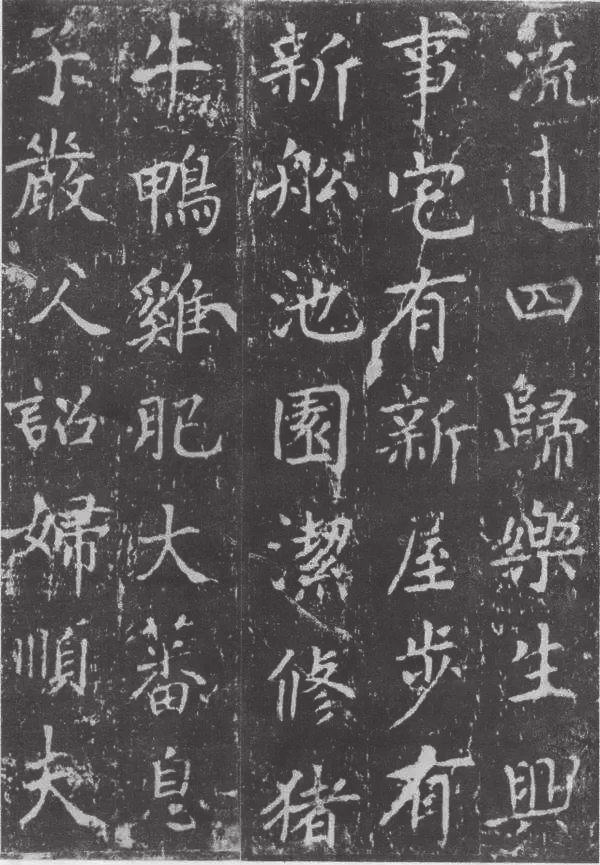 流逋四歸樂生興
事宅有新屋步有
新舩池園潔修猪
牛鴨雞肥大蕃息
子嚴父詔婦順夫